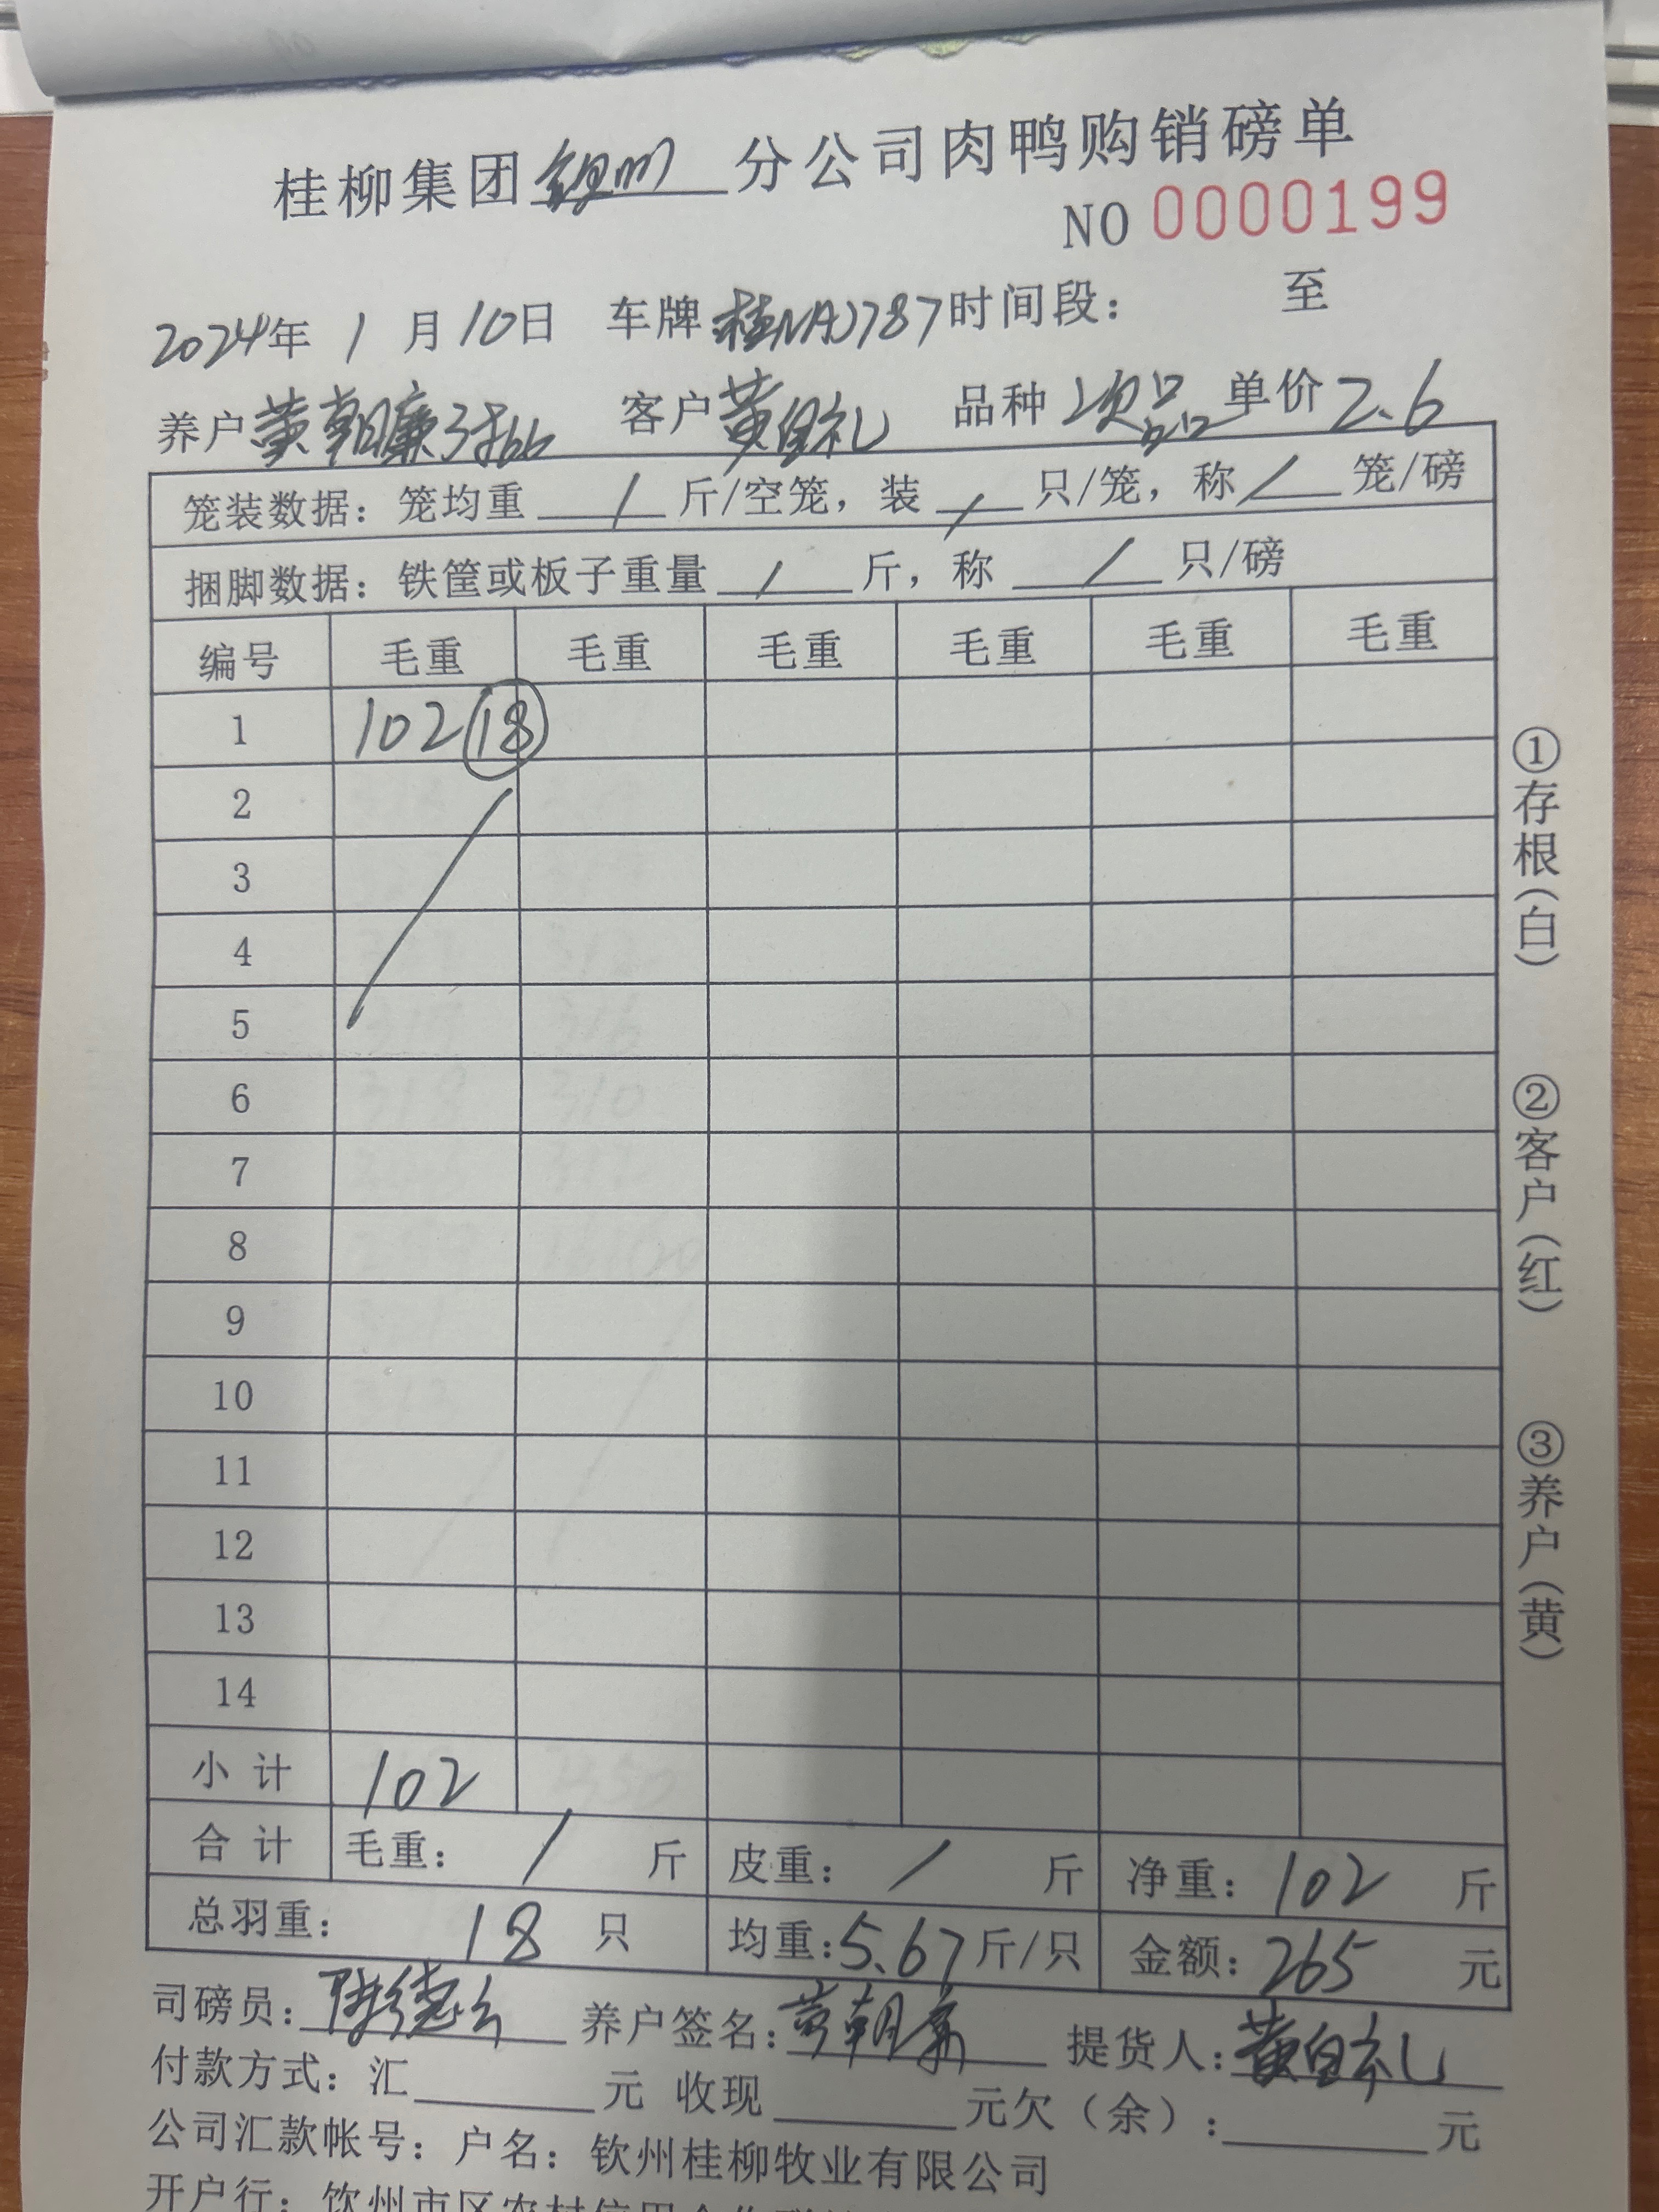 桂柳集团钦州分公司肉鸭购销磅单
NO 0000199
2024年 1 月 10日 车牌:桂NAJ787 时间段: 至
养户 黄朝廉 客户 黄自礼 品种 次品 单价 2.6
笼装数据: 笼均重 / 斤/空笼, 装 / 只/笼, 称 / 笼/磅
捆脚数据: 铁筐或板子重量 / 斤, 称 / 只/磅
编号 毛重 毛重 毛重 毛重 毛重 毛重
1 102 18
2
3
4
5
6
7
8
9
10
11
12
13
14
小计 102
合计 毛重: / 斤 皮重: / 斤 净重: 102 斤
总羽重: 18 只 均重: 5.67 斤/只 金额: 265 元
司磅员: 养户签名: 黄朝廉 提货人: 黄自礼
付款方式: 汇 元 收现 元欠(余): 元
公司汇款帐号: 户名: 钦州桂柳牧业有限公司
开户行: 钦州市区农村信用合作
①存根(白)
②客户(红)
③养户(黄)